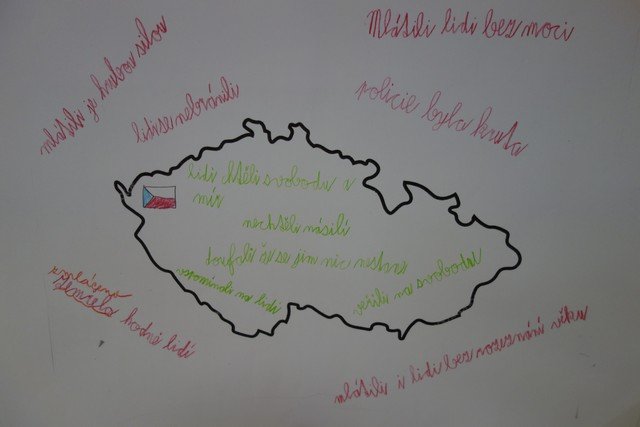 Mlátili lidi bez moci
mlátili je hrubou silou
lidi se nebránili
policie byla krutá
lidi chtěli svobodu a
mír
nechtěli násilí
doufali že se jim nic nestane
vzpomínali na lidi
věřili na svobodu
hodně lidí
mlátili i lidi bez rozeznání věku